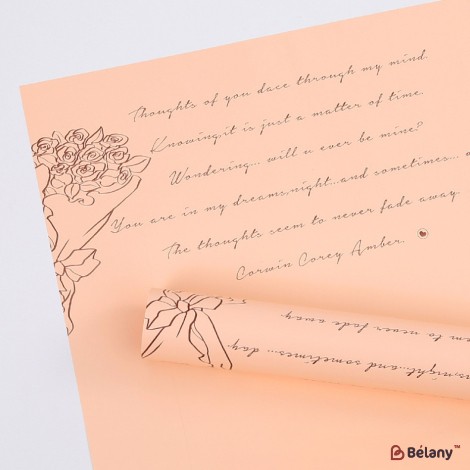 Thoughts of you dace through my mind.
Knowing,it is just a matter of time.
Wondering... will u ever be mine?
You are in my dreams,night...and sometimes...
The thoughts seem to never fade away.
Corwin Corey Amber.
to never fade away.
night...and sometimes... day.
Bélany™